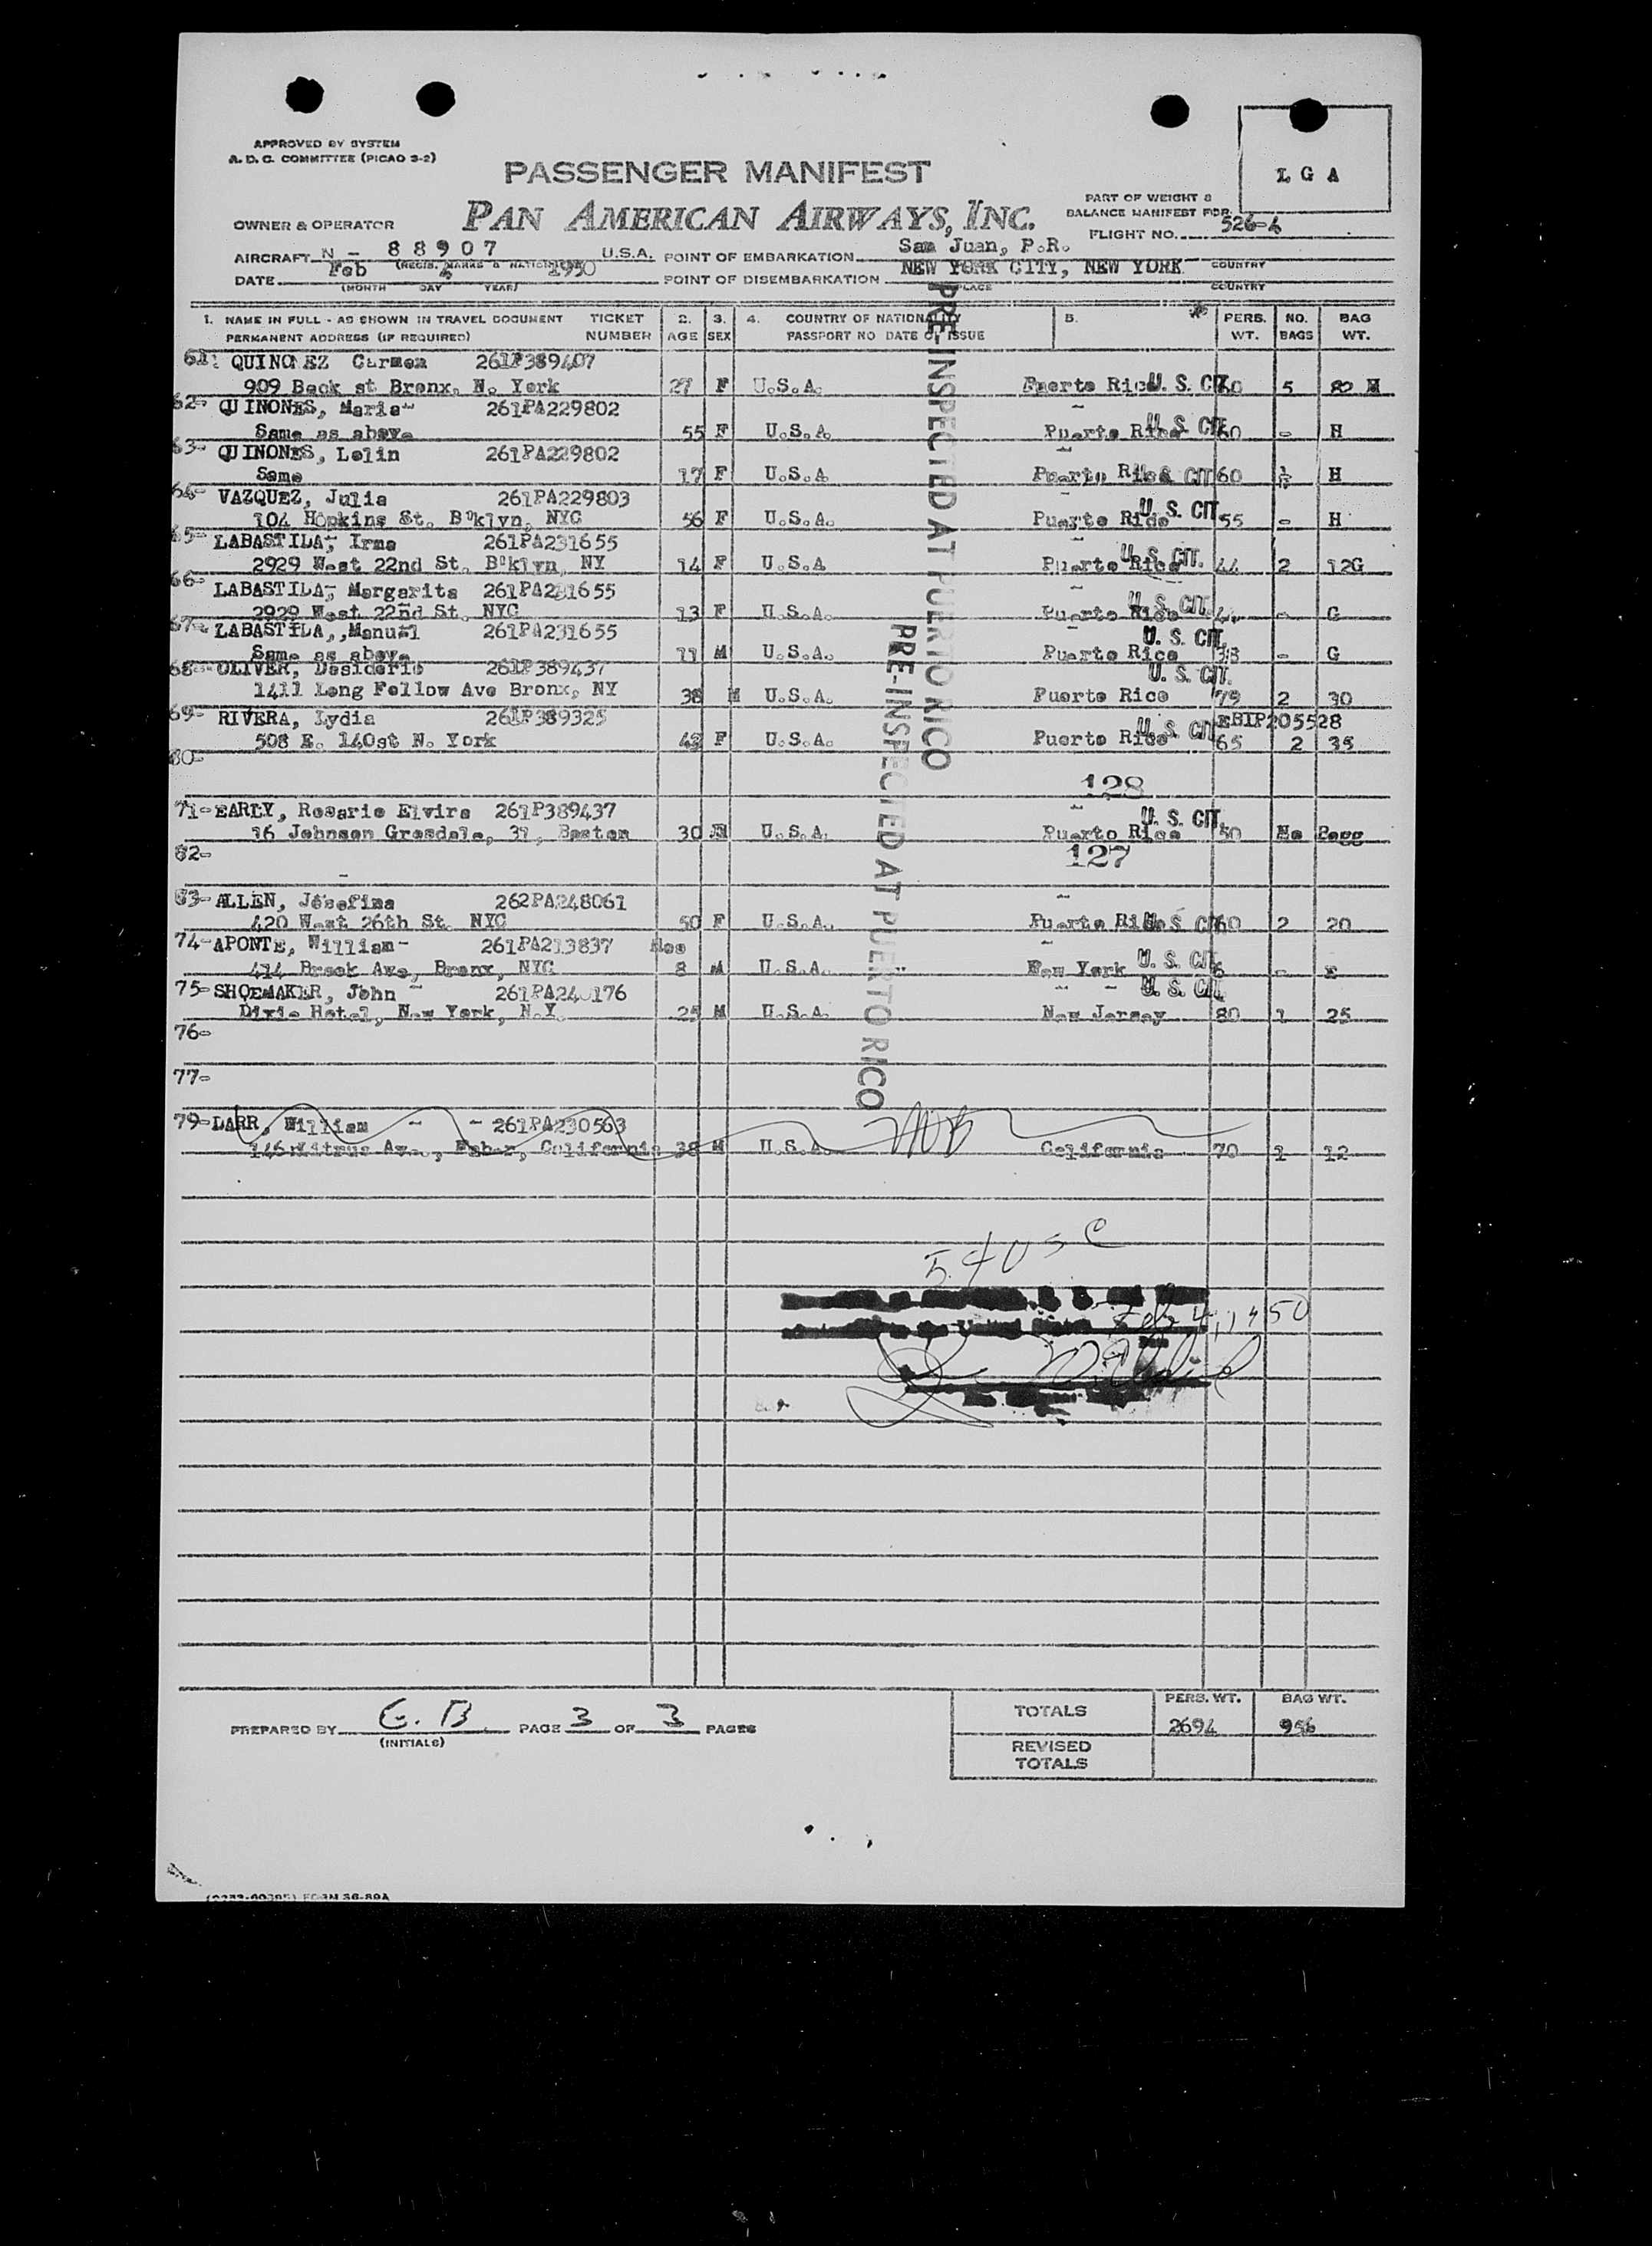 APPROVED BY SYSTEM
A. D. C. COMMITTEE (PICAO 3-2)
L G A
PASSENGER MANIFEST
PAN AMERICAN AIRWAYS, INC.
PART OF WEIGHT &
BALANCE MANIFEST FOR
FLIGHT NO. 526-4
OWNER & OPERATOR
AIRCRAFT N - 88907 U.S.A. POINT OF EMBARKATION San Juan, P.R.
(REGIS. MARKS & NATION COUNTRY
DATE Feb 4 1950 POINT OF DISEMBARKATION NEW YORK CITY, NEW YORK
(MONTH DAY YEAR) PLACE COUNTRY
1. NAME IN FULL - AS SHOWN IN TRAVEL DOCUMENT TICKET 2. 3. 4. COUNTRY OF NATIONALITY 5. PERS. NO. BAG
PERMANENT ADDRESS (IF REQUIRED) NUMBER AGE SEX PASSPORT NO DATE OF ISSUE WT. BAGS WT.
61- QUINO EZ Carmen 261P389407
909 Beck st Bronx, N. York 27 F U.S.A. Puerto Rico U. S. CIT 60 5 82 H
62- QUINONES, Maria 261PA229802
Same as above 55 F U.S.A. Puerto Rico U. S. CIT 60 - H
63- QUINONES, Lolin 261PA229802
Same 17 F U.S.A Puerto Rico CIT 60 H
64- VAZQUEZ, Julia 261PA229803
104 Hopkins St. B'klyn, NYC 56 F U.S.A. Puerto Rico U. S. CIT 55 - H
65- LABASTILA, Irma 261PA231655
2929 West 22nd St. B'klyn NY 14 F U.S.A Puerto Rico U. S. CIT. 44 2 12G
66- LABASTILA, Margarita 261PA231655
2929 West 22nd St. NYC 13 F U.S.A. Puerto Rico U. S. CIT. - G
67- LABASTILA,,Manual 261PA231655
Same as above 11 M U.S.A. Puerto Rico U. S. CIT. - G
68- OLIVER, Desiderio 261P389437
1411 Long Fellow Ave Bronx, NY 38 M U.S.A. Puerto Rico U. S. CIT. 79 2 30
69- RIVERA, Lydia 261P389325 EBIP205528
508 E. 140st N. York 43 F U.S.A. Puerto Rico U. S. CIT 65 2 35
80-
128
71- EARLY, Rosario Elvira 261P389437
16 Johnson Grosdale, 31, Boston 30 U.S.A. Puerto Rico U. S. CIT. 50 No Bagg
82-
127
83- ALLEN, Josefina 262PA248061
420 West 26th St. NYC 50 F U.S.A. Puerto Rico U. S. CIT 60 2 20
74- APONTE, William- 261PA213837
414 Brook Ave, Bronx, NYC 8 M U.S.A. New York U. S. CIT -
75- SHOEMAKER, John 261PA240176
Dixie Hotel, New York, N.Y. 25 M U.S.A. New Jersey U. S. CIT. 80 1 25
76-
77-
79- LARR, William - - 261PA230563
Ave., California 38 M U.S.A. California 70 1 12
PRE-INSPECTED AT PUERTO RICO
PRE-INSPECTED AT PUERTO RICO
Feb 4, 1950
PREPARED BY G. B. PAGE 3 OF 3 PAGES
(INITIALS)
PERS. WT. BAG WT.
TOTALS 2694 956
REVISED
TOTALS
FORM 36-89A